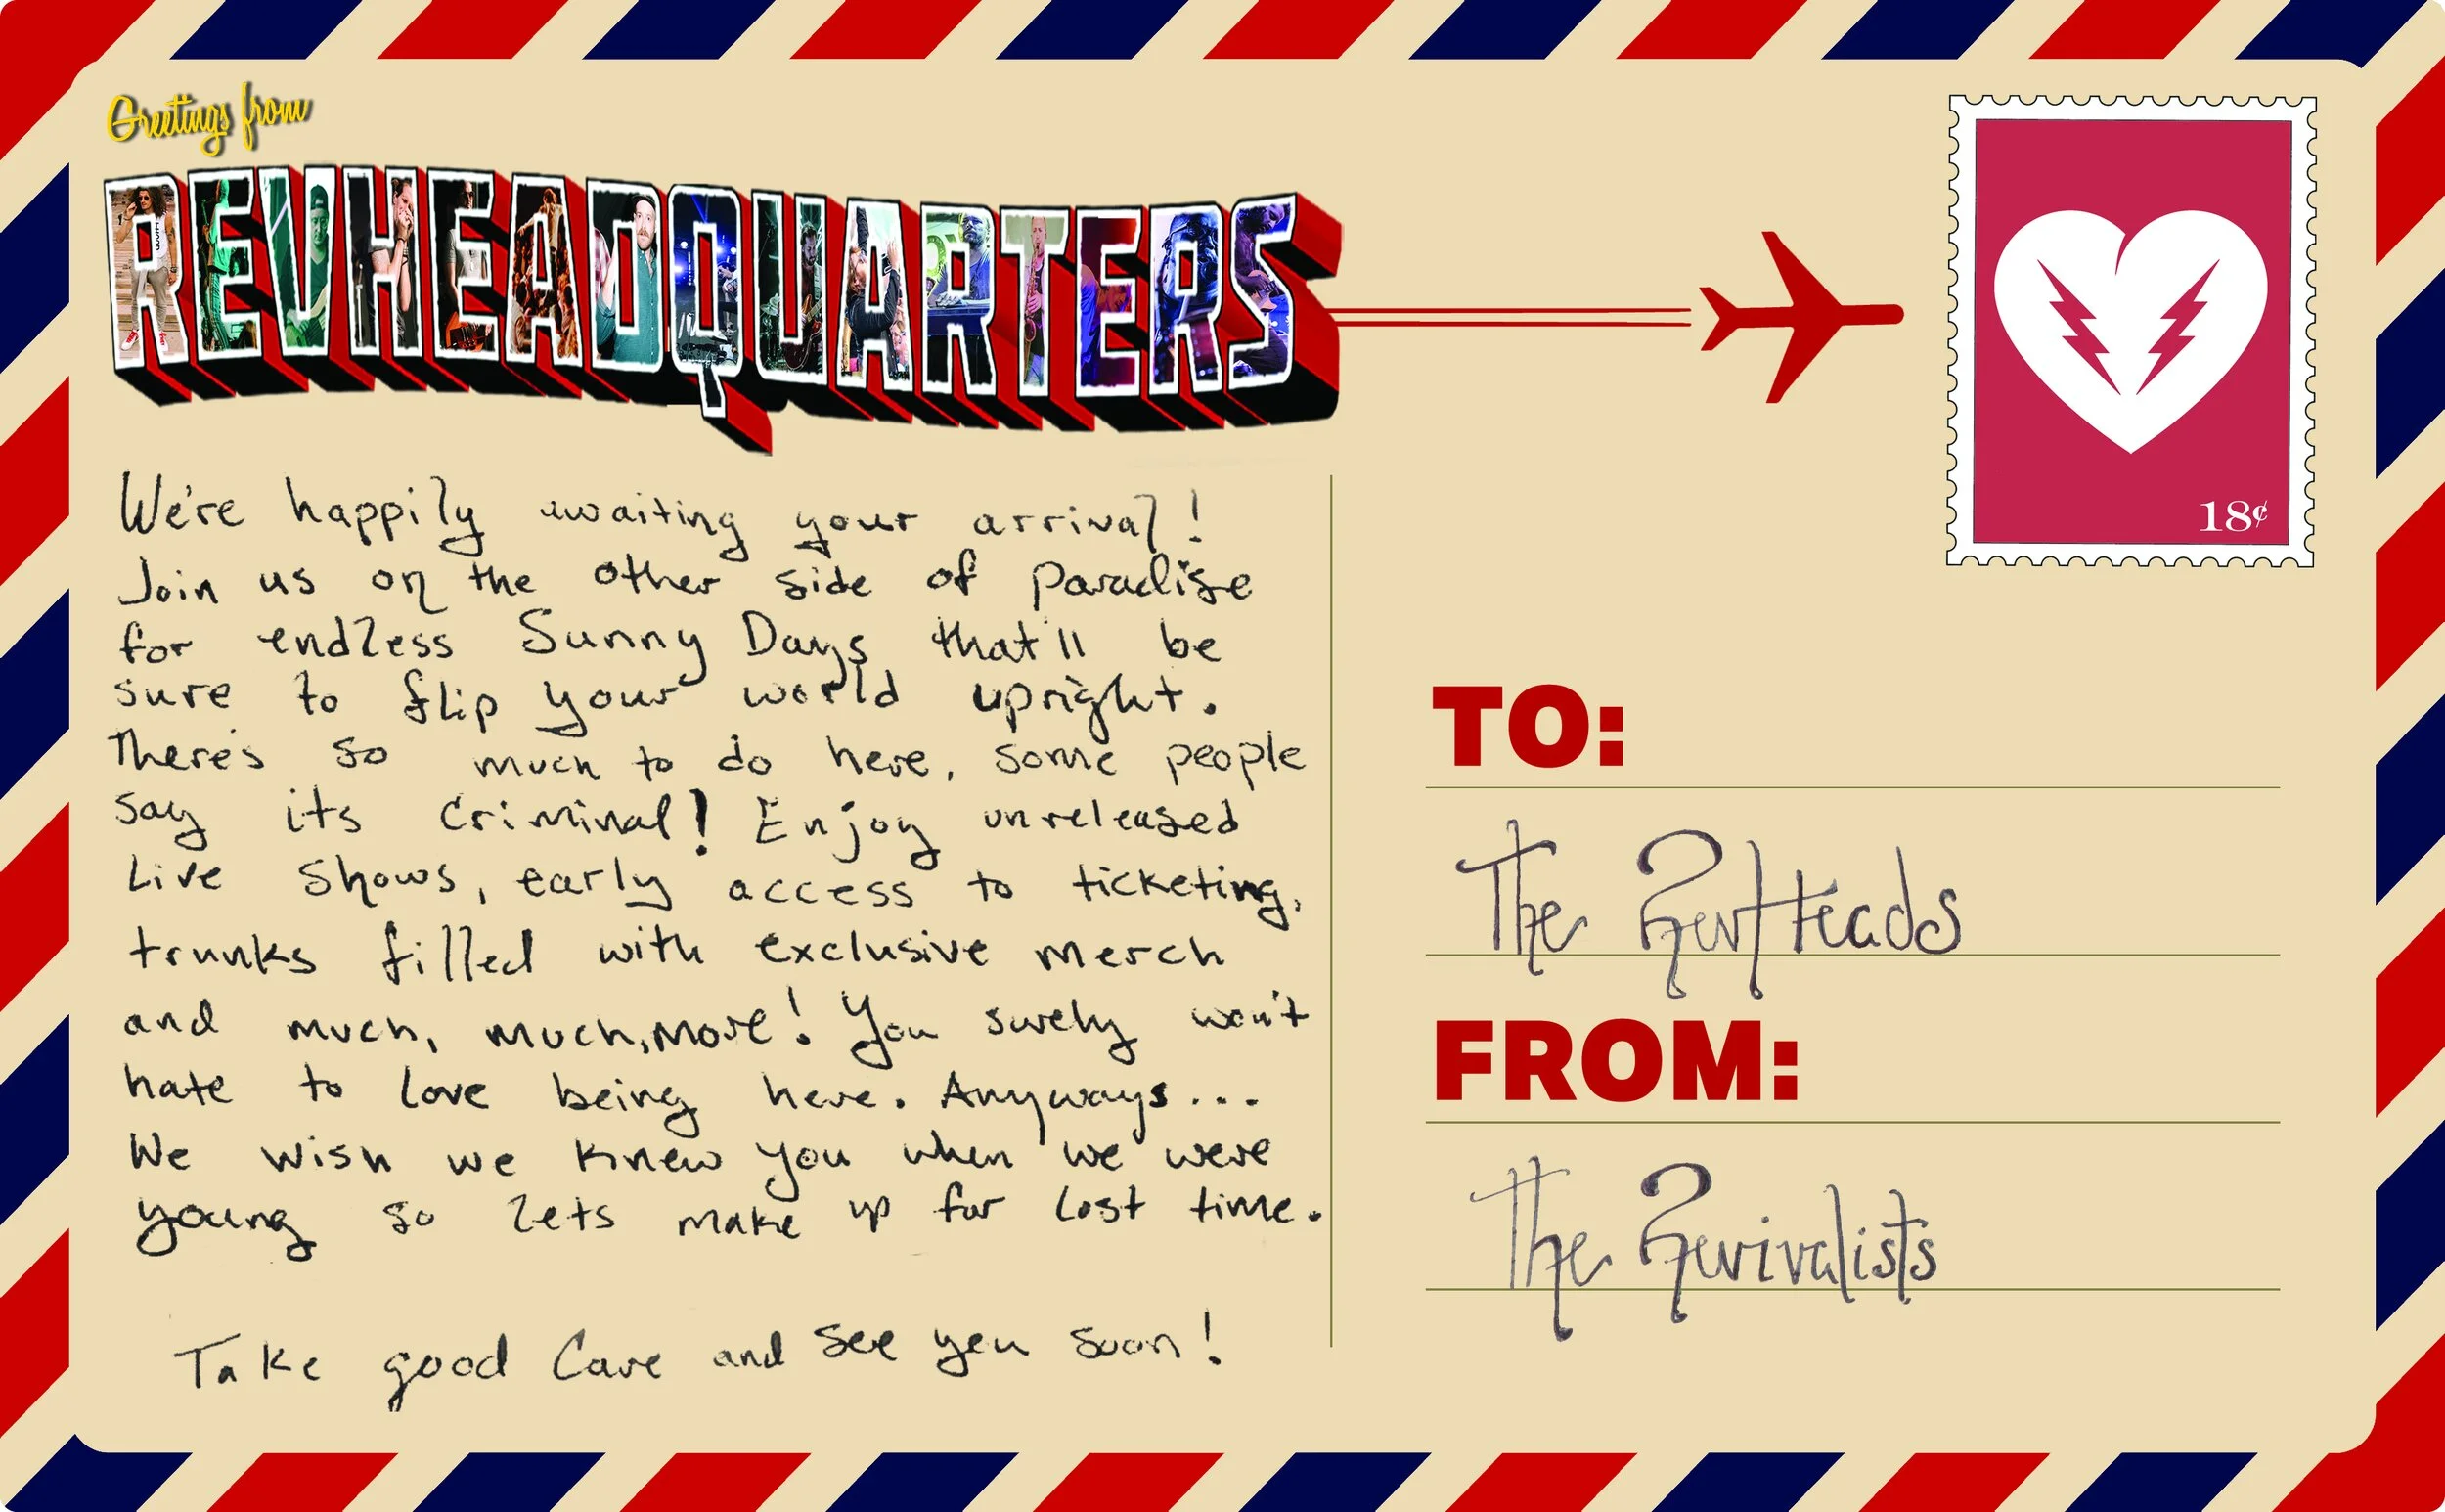 Greetings from
REVHEADQUARTERS
18¢
We're happily awaiting your arrival!
Join us on the other side of Paradise
for endless Sunny Days that'll be
sure to flip your world upright.
There's so much to do here, some people
say its criminal! Enjoy unreleased
Live shows, early access to ticketing,
trunks filled with exclusive merch
and much, much, more! You surely won't
hate to love being here. Anyways...
We wish we knew you when we were
young so lets make up for lost time.
Take good Care and see you soon!
TO:
The RevHeads
FROM:
The Revivalists